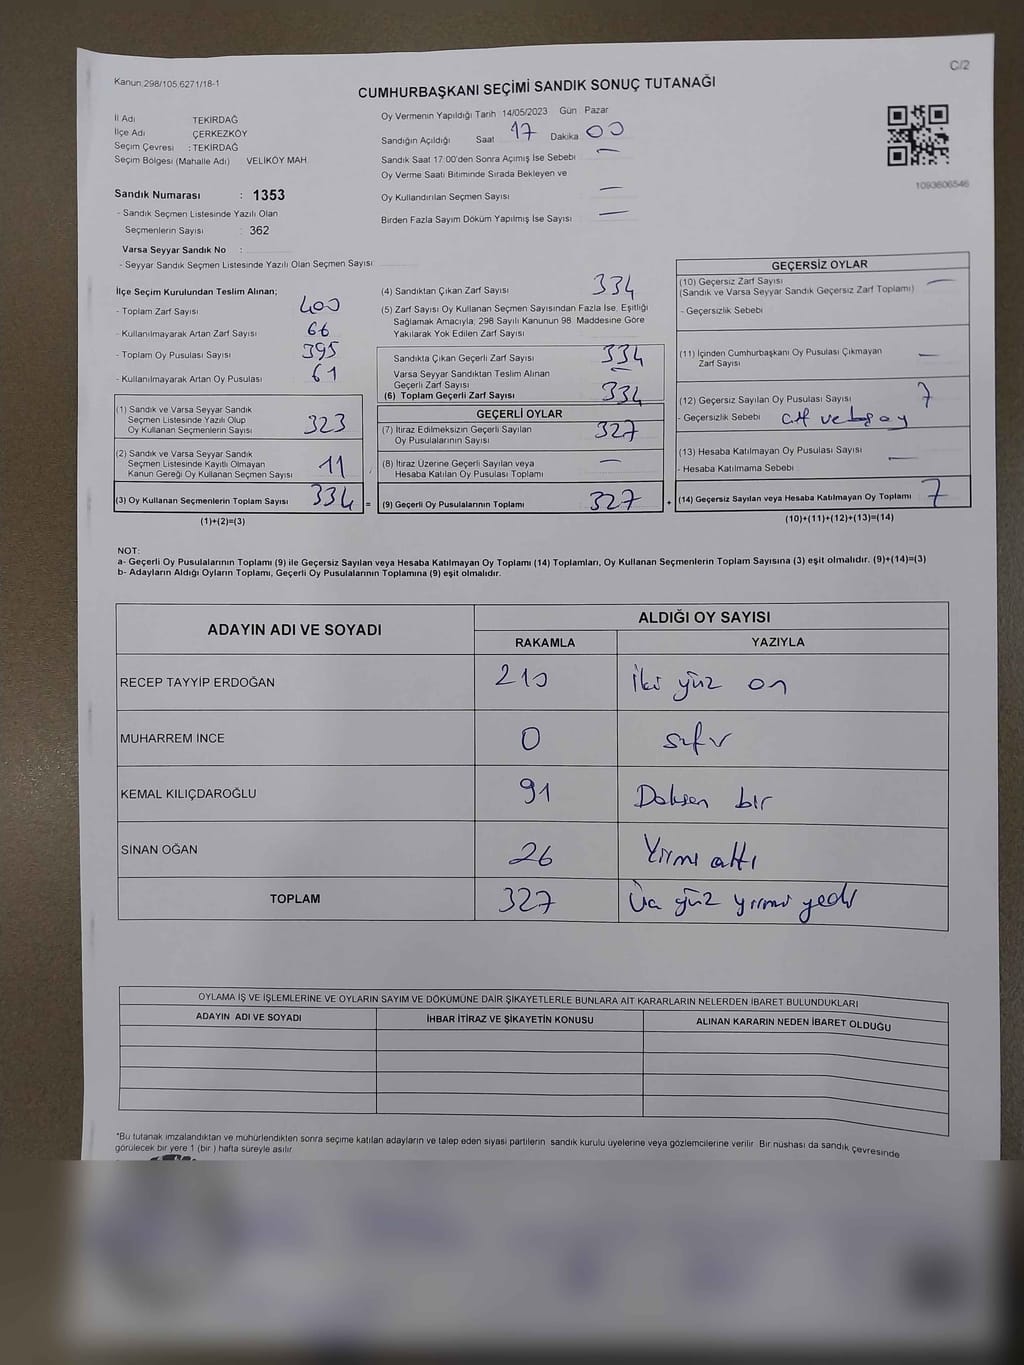 Kanun.298/105.6271/18-1
C/2
CUMHURBAŞKANI SEÇİMİ SANDIK SONUÇ TUTANAĞI
İl Adı TEKİRDAĞ
İlçe Adı ÇERKEZKÖY
Seçim Çevresi : TEKİRDAĞ
Seçim Bölgesi (Mahalle Adı) VELİKÖY MAH.
Sandık Numarası : 1353
- Sandık Seçmen Listesinde Yazılı Olan
Seçmenlerin Sayısı : 362
Varsa Seyyar Sandık No :
- Seyyar Sandık Seçmen Listesinde Yazılı Olan Seçmen Sayısı:
Oy Vermenin Yapıldığı Tarih 14/05/2023 Gün Pazar
Sandığın Açıldığı Saat 17 Dakika 00
Sandık Saat 17:00'den Sonra Açımış İse Sebebi —
Oy Verme Saati Bitiminde Sırada Bekleyen ve
Oy Kullandırılan Seçmen Sayısı —
Birden Fazla Sayım Döküm Yapılmış İse Sayısı —
1093606546
İlçe Seçim Kurulundan Teslim Alınan;
- Toplam Zarf Sayısı 400
- Kullanılmayarak Artan Zarf Sayısı 66
- Toplam Oy Pusulası Sayısı 395
- Kullanılmayarak Artan Oy Pusulası 61
(1) Sandık ve Varsa Seyyar Sandık
Seçmen Listesinde Yazılı Olup
Oy Kullanan Seçmenlerin Sayısı 323
(2) Sandık ve Varsa Seyyar Sandık
Seçmen Listesinde Kayıtlı Olmayan
Kanun Gereği Oy Kullanan Seçmen Sayısı 11
(3) Oy Kullanan Seçmenlerin Toplam Sayısı 334 =
(1)+(2)=(3)
(4) Sandıktan Çıkan Zarf Sayısı 334
(5) Zarf Sayısı Oy Kullanan Seçmen Sayısından Fazla İse, Eşitliği
Sağlamak Amacıyla; 298 Sayılı Kanunun 98. Maddesine Göre
Yakılarak Yok Edilen Zarf Sayısı
Sandıkta Çıkan Geçerli Zarf Sayısı 334
Varsa Seyyar Sandıktan Teslim Alınan
Geçerli Zarf Sayısı —
(6) Toplam Geçerli Zarf Sayısı 334
GEÇERLİ OYLAR
(7) İtiraz Edilmeksizin Geçerli Sayılan
Oy Pusulalarının Sayısı 327
(8) İtiraz Üzerine Geçerli Sayılan veya
Hesaba Katılan Oy Pusulası Toplamı —
(9) Geçerli Oy Pusulalarının Toplamı 327 +
GEÇERSİZ OYLAR
(10) Geçersiz Zarf Sayısı —
(Sandık ve Varsa Seyyar Sandık Geçersiz Zarf Toplamı)
- Geçersizlik Sebebi
(11) İçinden Cumhurbaşkanı Oy Pusulası Çıkmayan
Zarf Sayısı —
(12) Geçersiz Sayılan Oy Pusulası Sayısı 7
- Geçersizlik Sebebi çift ve boş oy
(13) Hesaba Katılmayan Oy Pusulası Sayısı —
- Hesaba Katılmama Sebebi
(14) Geçersiz Sayılan veya Hesaba Katılmayan Oy Toplamı 7
(10)+(11)+(12)+(13)=(14)
NOT:
a- Geçerli Oy Pusulalarının Toplamı (9) ile Geçersiz Sayılan veya Hesaba Katılmayan Oy Toplamı (14) Toplamları, Oy Kullanan Seçmenlerin Toplam Sayısına (3) eşit olmalıdır. (9)+(14)=(3)
b- Adayların Aldığı Oyların Toplamı, Geçerli Oy Pusulalarının Toplamına (9) eşit olmalıdır.
ADAYIN ADI VE SOYADI
ALDIĞI OY SAYISI
RAKAMLA YAZIYLA
RECEP TAYYİP ERDOĞAN 210 İki yüz on
MUHARREM İNCE 0 sıfır
KEMAL KILIÇDAROĞLU 91 Doksan bir
SİNAN OĞAN 26 Yirmi altı
TOPLAM 327 Üç yüz yirmi yedi
OYLAMA İŞ VE İŞLEMLERİNE VE OYLARIN SAYIM VE DÖKÜMÜNE DAİR ŞİKAYETLERLE BUNLARA AİT KARARLARIN NELERDEN İBARET BULUNDUKLARI
ADAYIN ADI VE SOYADI İHBAR İTİRAZ VE ŞİKAYETİN KONUSU ALINAN KARARIN NEDEN İBARET OLDUĞU
*Bu tutanak imzalandıktan ve mühürlendikten sonra seçime katılan adayların ve talep eden siyasi partilerin sandık kurulu üyelerine veya gözlemcilerine verilir. Bir nüshası da sandık çevresinde
görülecek bir yere 1 (bir ) hafta süreyle asılır.